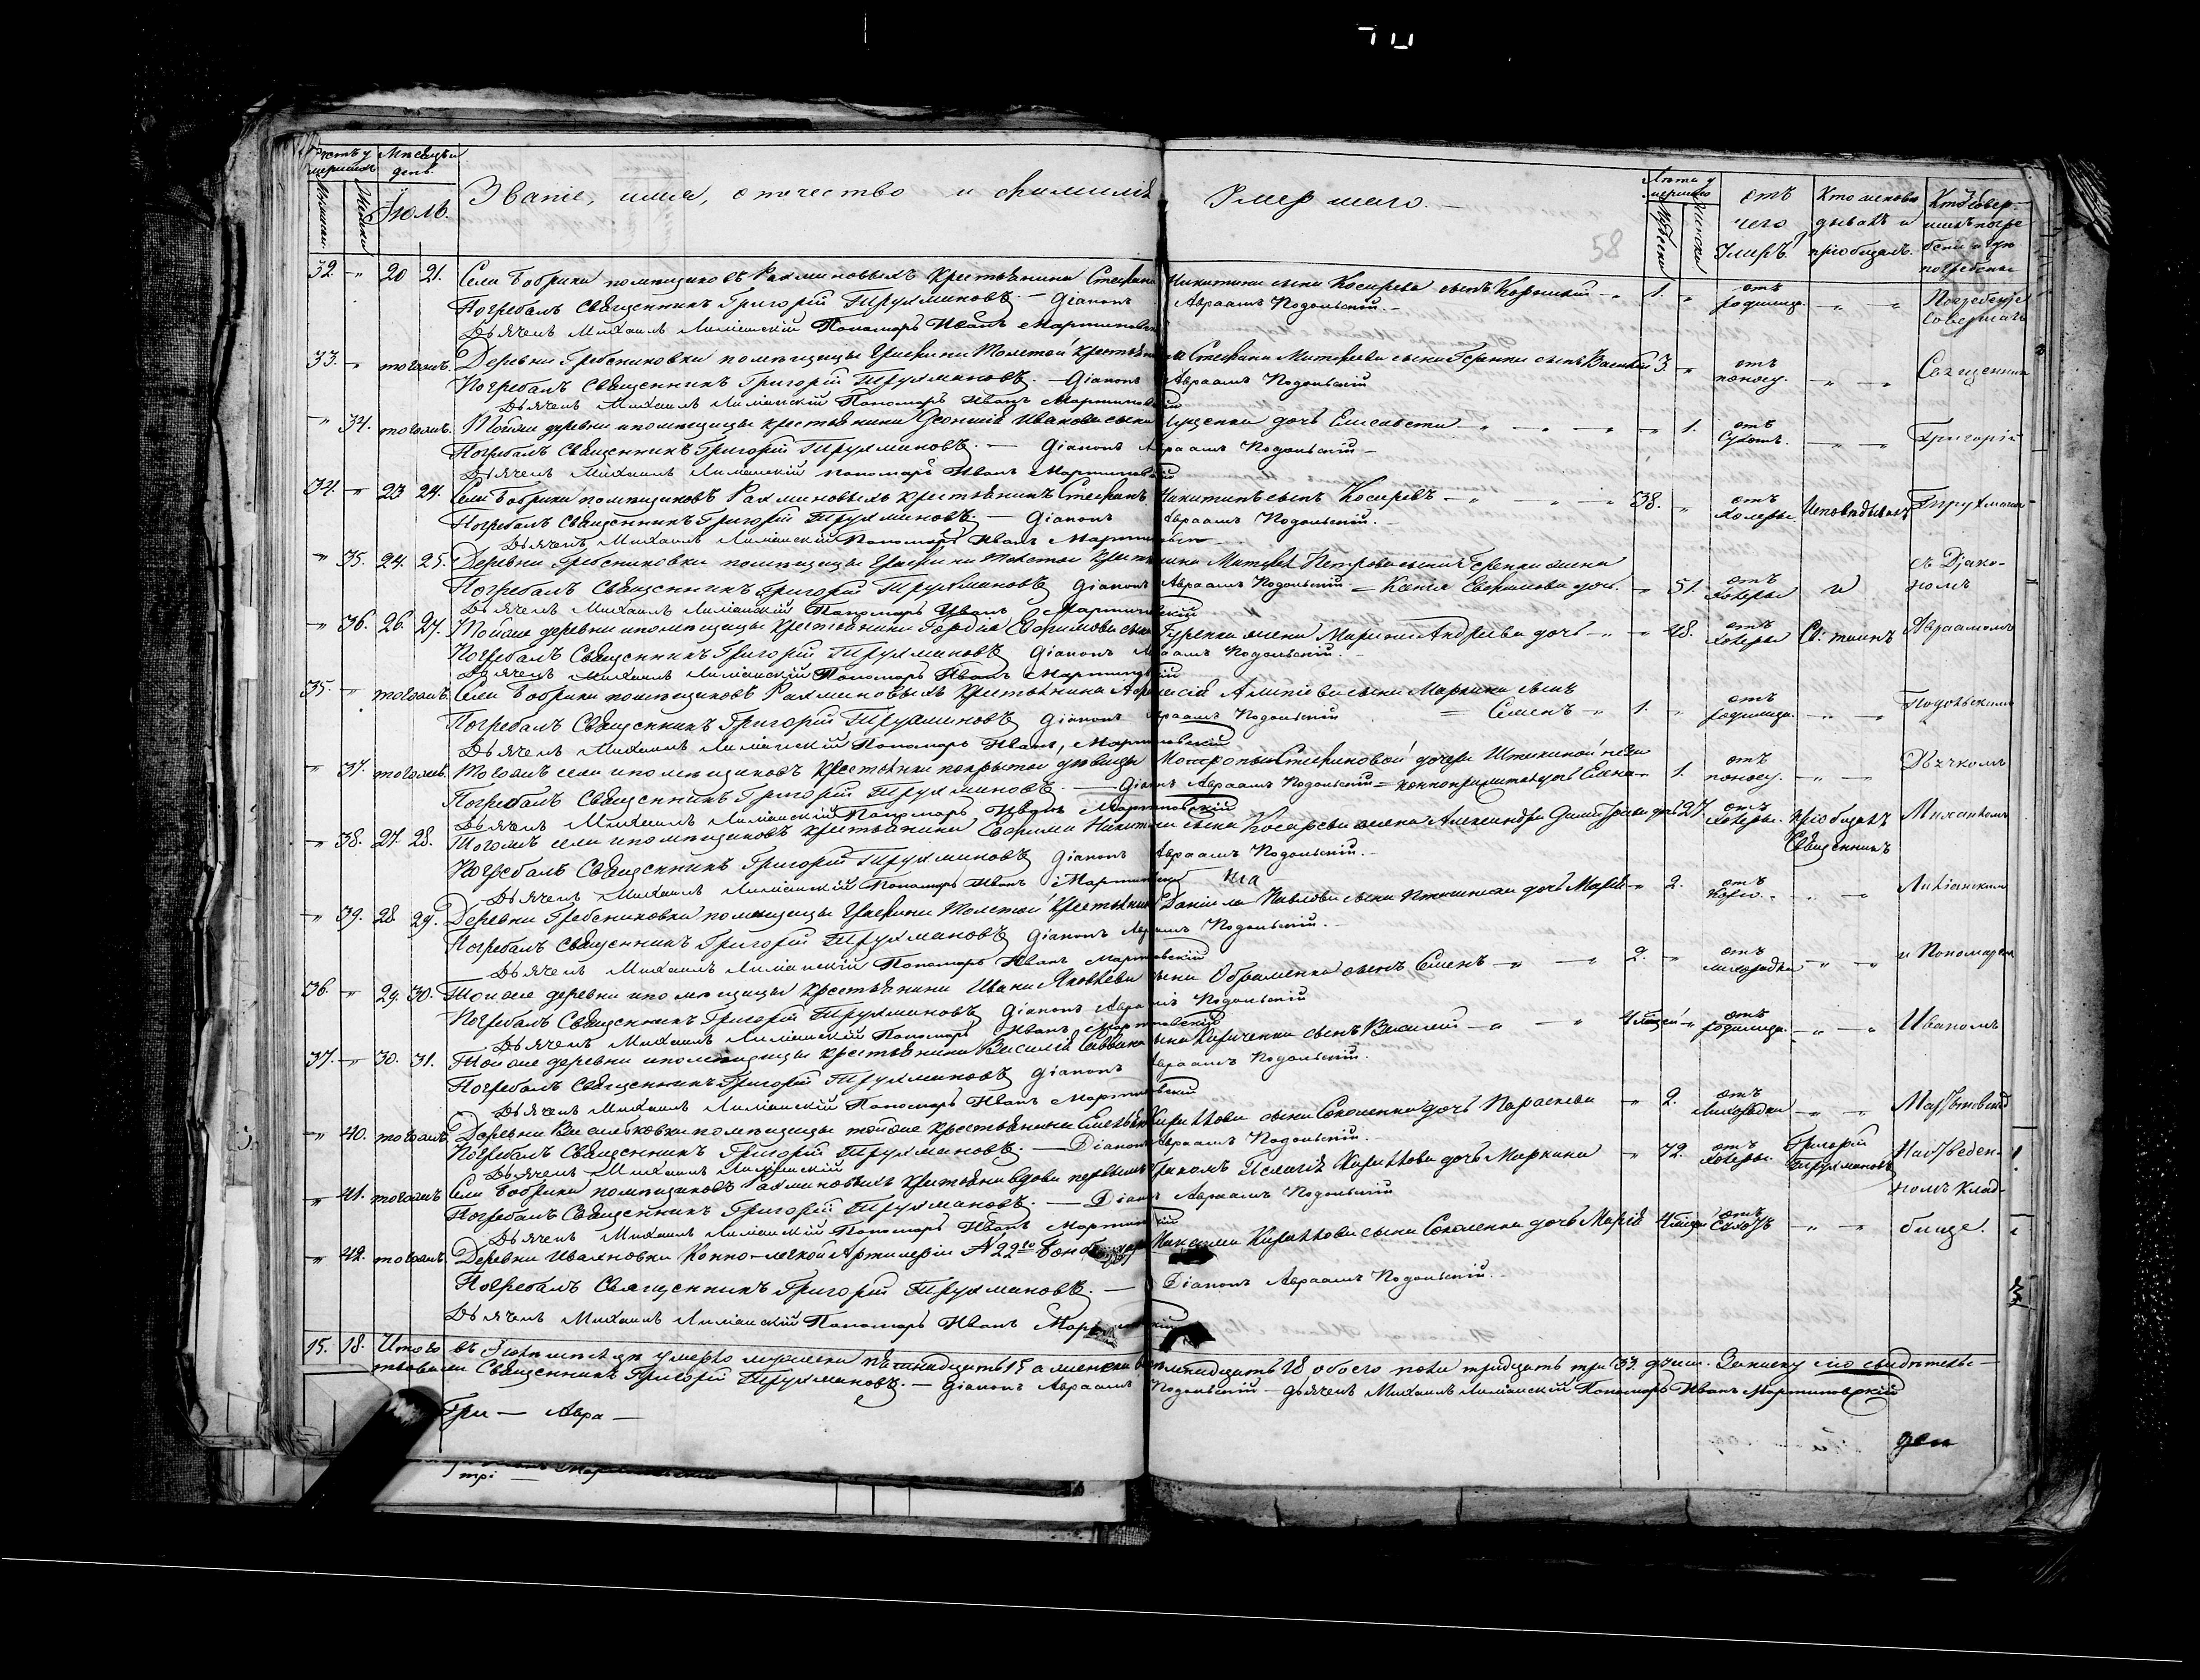 Счетъ умершихъ
Мѣсяцъ и день.
Мужеска.
Женска
Іюль.
Званіе, имя, отечество и фамилія Умершаго. —
58
Лѣта умершаго
Мужеска
Женска
отъ чего Умеръ?
Кто исповѣдывалъ и пріобщалъ.
Кто Совершилъ погребеніе и гдѣ погребены
32. — „ 20 21. Села Бобрика помѣщиковъ Рахмановыхъ Крестьянина Стефана Никитина сына Косарева сынъ — „ 1. „ отъ родимца. „ „ Погребеніе Совершалъ
Погребалъ Священникъ Григорій Трухмановъ. — Діаконъ Авраамъ Подольскій. —
Дьячекъ Михаилъ Лиманскій Пономарь Иванъ Мартиновскій
33. — „ тогожъ. Деревни Гребениковки помѣщицы Графини Толстой крестьянина Стефана Матфеева сына сынъ Василій 3. „ отъ поносу. „ — „ Священникъ
Погребалъ Священникъ Григорій Трухмановъ. — Діаконъ Авраамъ Подольскій
Дьячекъ Михаилъ Лиманскій Пономарь Иванъ Мартиновскій
„ 34. тогожъ. Тойже деревни и помѣщицы крестьянина Иванова сына дочь Елисавета — „ — „ — „ 1. отъ Сухотъ. „ — „ Григорій
Погребалъ Священникъ Григорій Трухмановъ. — Діаконъ Авраамъ Подольскій —
Дьячекъ Михаилъ Лиманскій Пономарь Иванъ Мартиновскій
34. — „ 23 24. Села Бобрика помѣщиковъ Рахмановыхъ крестьянинъ Стефанъ Никитинъ сынъ Косаревъ — „ — „ — „ 38. „ отъ холеры. Исповѣдывалъ Трухмановъ
Погребалъ Священникъ Григорій Трухмановъ. — Діаконъ Авраамъ Подольскій. —
Дьячекъ Михаилъ Лиманскій Пономарь Иванъ Мартиновскій
„ 35. 24. 25. Деревни Гребениковки помѣщицы Графини Толстой крестьянина Матфея Петрова сына жена
Погребалъ Священникъ Григорій Трухмановъ Діаконъ Авраамъ Подольскій. = Ксенія дочь. „ 51. отъ холеры и съ Діакономъ
Дьячекъ Михаилъ Лиманскій Пономарь Иванъ Мартиновскій
„ 36. 26. 27. Тойже деревни и помѣщицы крестьянина Гордія Ефимова сына жена Андреева дочь — „ „ 48. отъ холеры Св: таинъ Авраамомъ
Погребалъ Священникъ Григорій Трухмановъ Діаконъ Авраамъ Подольскій. —
Дьячекъ Михаилъ Лиманскій Пономарь Иванъ Мартиновскій
35. — „ тогожъ. Села Бобрика помѣщиковъ Рахмановыхъ крестьянина Афанасія сына Маркина сынъ
Погребалъ Священникъ Григорій Трухмановъ Діаконъ Авраамъ Подольскій = Семенъ — „ 1. „ отъ родимца. „ — „ Подольскимъ
Дьячекъ Михаилъ Лиманскій Пономарь Иванъ Мартиновскій
„ 37. тогожъ. Тогожъ села и помѣщиковъ крестьянки покрытой дѣвицы Стефановой дочери „ 1. отъ поносу. „ — „ Дьячкомъ
Погребалъ Священникъ Григорій Трухмановъ. — Діаконъ Авраамъ Подольскій = Елена
Дьячекъ Михаилъ Лиманскій Пономарь Иванъ Мартиновскій
„ 38. 27. 28. Тогожъ села и помѣщиковъ крестьянина Ефима Никитина сына Косарева жена Александра дочь 27. отъ холеры. пріобщалъ Священникъ Михаиломъ
Погребалъ Священникъ Григорій Трухмановъ Діаконъ Авраамъ Подольскій. —
Дьячекъ Михаилъ Лиманскій Пономарь Иванъ Мартиновскій
на
„ 39. 28 29. Деревни Гребениковки помѣщицы Графини Толстой крестьянина Даніила Павлова сына дочь Марія — „ 2. отъ Кори. „ — „ Лиманскимъ
Погребалъ Священникъ Григорій Трухмановъ Діаконъ Авраамъ Подольскій. —
Дьячекъ Михаилъ Лиманскій Пономарь Иванъ Мартиновскій
36. — „ 29. 30. Тойже деревни и помѣщицы крестьянина Ивана Яковлева сына Обраменка сынъ Семенъ — „ — „ 2. „ отъ лихорадки „ — „ и Пономаремъ
Погребалъ Священникъ Григорій Трухмановъ Діаконъ Авраамъ Подольскій
Дьячекъ Михаилъ Лиманскій Пономарь Иванъ Мартиновскій
37. — „ 30. 31. Тойже деревни и помѣщицы крестьянина Василія Саввина сына сынъ Василій — „ — „ 4 мѣсяц „ отъ родимца. „ — „ Иваномъ
Погребалъ Священникъ Григорій Трухмановъ Діаконъ Авраамъ Подольскій.
Дьячекъ Михаилъ Лиманскій Пономарь Иванъ Мартиновскій
„ 40. тогожъ Деревни Васильковки помѣщицы тойже крестьянина Емельяна Кириллова сына Соколенка дочь Параскева „ 2. отъ Лихорадки „ — „ Мартиновскимъ
Погребалъ Священникъ Григорій Трухмановъ. — Діаконъ Авраамъ Подольскій. —
Дьячекъ Михаилъ Лиманскій
„ 41. тогожъ Села Бобрика помѣщиковъ Рахмановыхъ крестьянка вдова первымъ бракомъ Пелагія Кириллова дочь Маркина „ 72. отъ холеры. Григорій Трухмановъ На отведенномъ клад-
Погребалъ Священникъ Григорій Трухмановъ. — Діаконъ Авраамъ Подольскій
Дьячекъ Михаилъ Лиманскій Пономарь Иванъ Мартиновскій
„ 42. тогожъ. Деревни Ивановки Конно-легкой Артилеріи №22го Максима Кириллова сына Соколенка дочь Марія 4 мѣсяц отъ Сухотъ „ — „ бище.
Погребалъ Священникъ Григорій Трухмановъ. — Діаконъ Авраамъ Подольскій. —
Дьячекъ Михаилъ Лиманскій Пономарь Иванъ Мартиновскій
15. 18. Итого въ Іюлѣ мѣсяцѣ умерло мужеска пятнадцать 15 а женска восемнадцать 18 обоего пола тридцать три 33. душъ. Записку сію свидѣтель-
ствовали Священникъ Григорій Трухмановъ. — Діаконъ Авраамъ Подольскій — Дьячекъ Михаилъ Лиманскій Пономарь Иванъ Мартиновскій
Гри — Авра —
ден